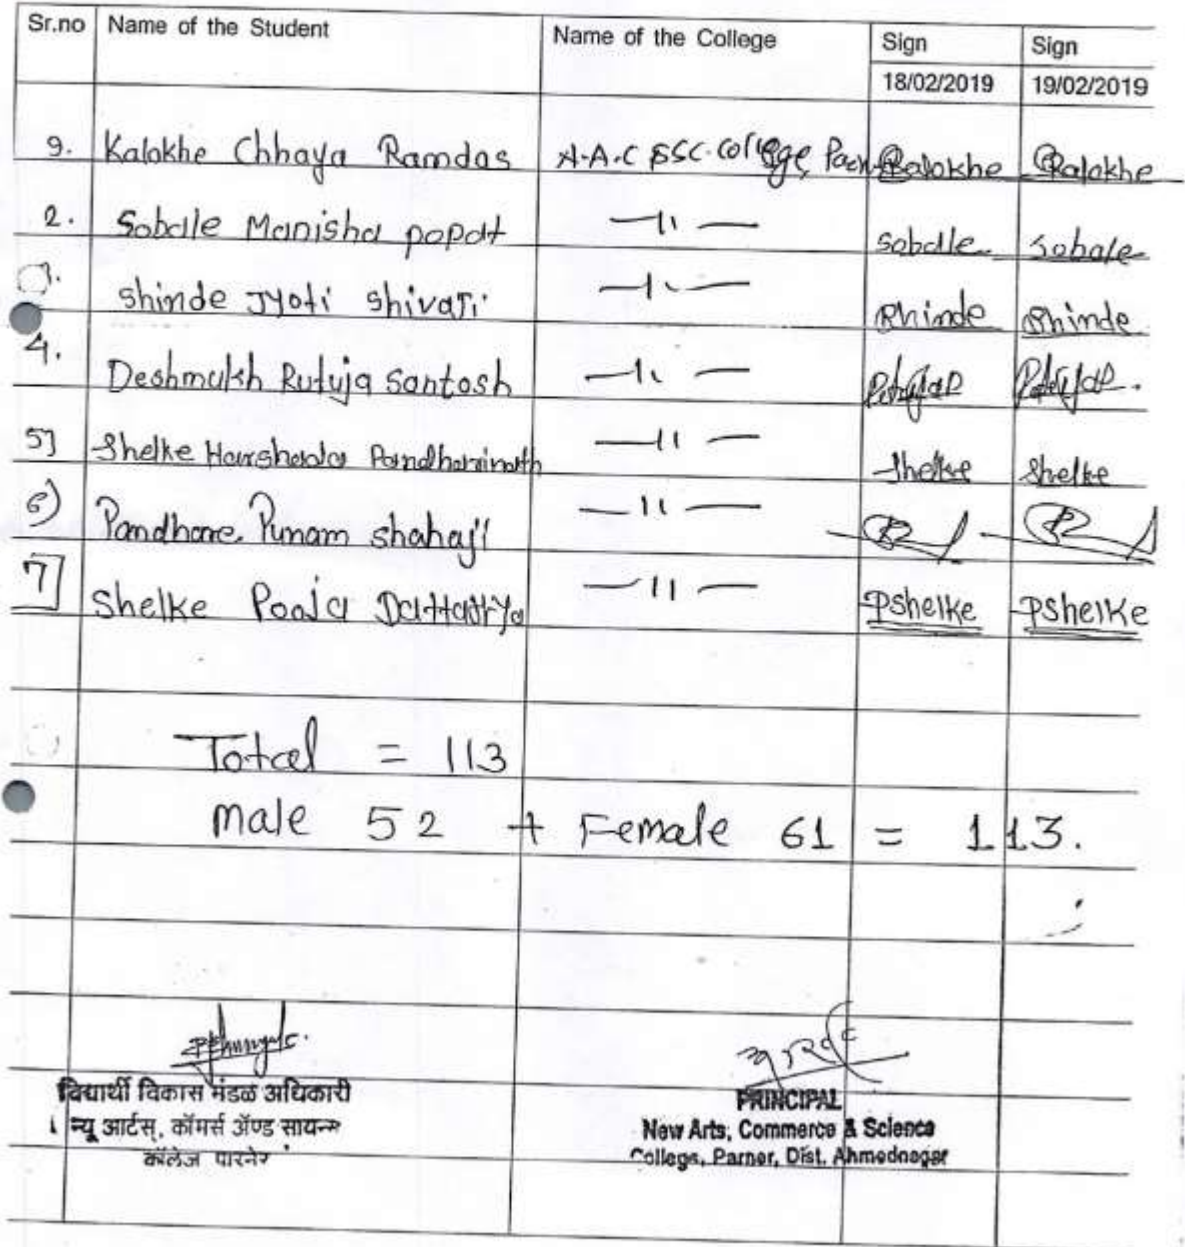 Sr.no Name of the Student Name of the College Sign Sign
18/02/2019 19/02/2019
9. Kalokhe Chhaya Ramdas A.A.C &SC. College, Kalokhe Kalokhe
2. Sabale Manisha popat —11— Sabale Sabale
3. Shinde Jyoti Shivaji —11— Shinde Shinde
4. Deshmukh Rutuja Santosh —11—
5] Shelke Harshada Pandharinath —11— Shelke Shelke
6) Pandhare Punam shahaji —11—
7] Shelke Pooja Dattatrya —11— PShelke PShelke
Total = 113
male 52 + Female 61 = 113.
विद्यार्थी विकास मंडळ अधिकारी
न्यू आर्टस्, कॉमर्स ॲण्ड सायन्स
कॉलेज पारनेर
PRINCIPAL
New Arts, Commerce & Science
College, Parner, Dist. Ahmednagar